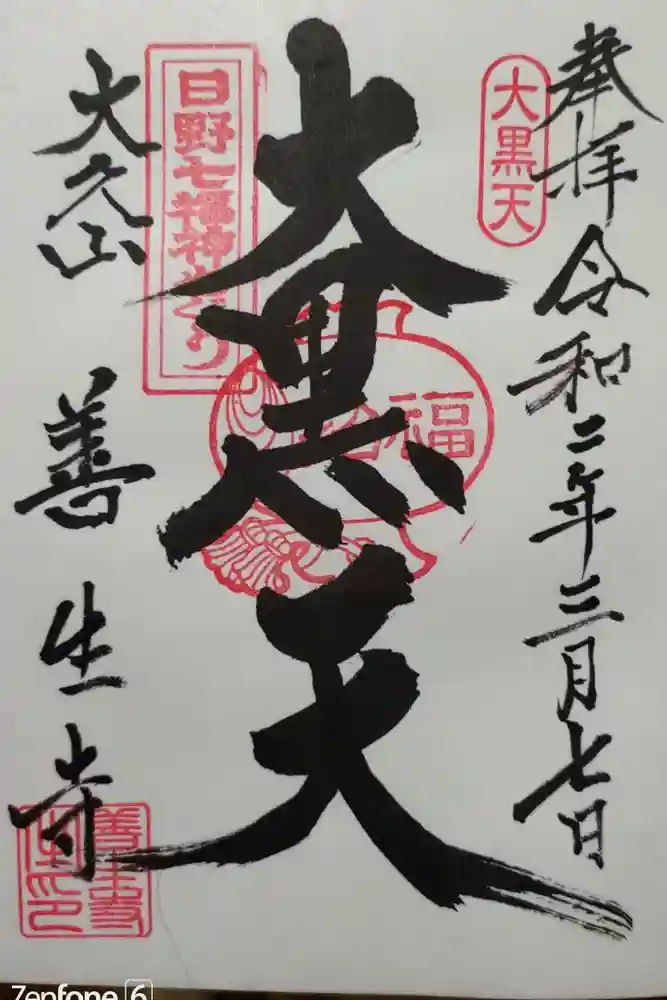 奉拝 令和二年三月七日
大黒天
大黒天
福
日野七福神めぐり
大久山 善生寺
善生寺
住印
Zenfone 6